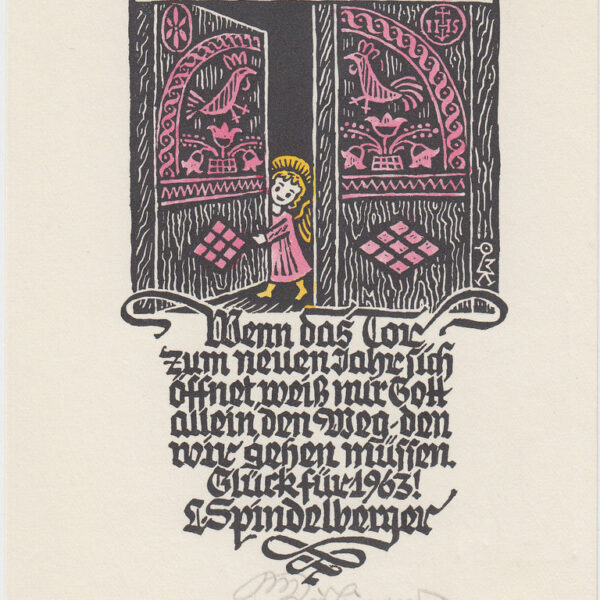 IHS
Wenn das Tor
zum neuen Jahr sich
öffnet weiß nur Gott
allein den Weg, den
wir gehen müssen.
Glück für 1963!
L. Spindelberger